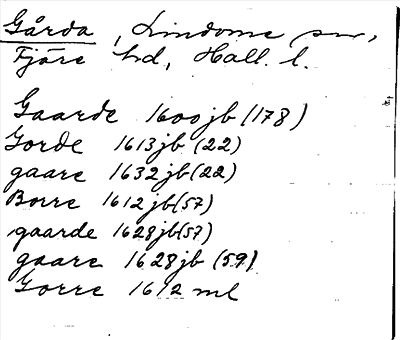 Gårda, Lindome sn,
Fjäre hd, Hall. l.
Gaarde 1600jb (178)
Gorde 1613jb (22)
gaare 1632jb (22)
Borre 1612jb (57)
gaarde 1628jb (57)
gaare 1628jb (59)
Gorre 1612 ml